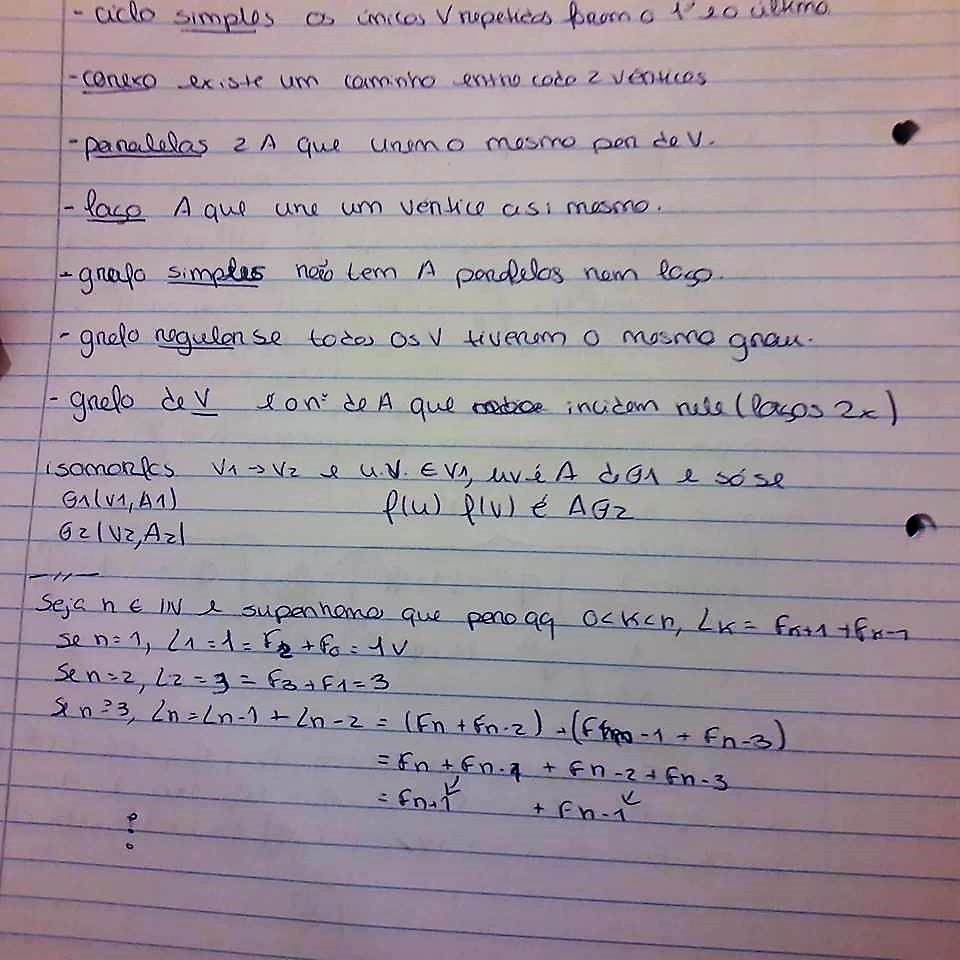 - ciclo simples os únicos V repetidos forem o 1º e o último
- conexo existe um caminho entre cada 2 vértices
- paralelas 2 A que unem o mesmo par de V.
- laço A que une um vértice a si mesmo.
- grafo simples não tem A paralelas nem laço.
- grafo regular se todos os V tiverem o mesmo grau.
- grafo de V é o nº de A que incidem nele (laços 2x)
isomorfos V1 → V2 e u.V. ∈ V1, uv é A de G1 e só se
G1(V1,A1) f(u) f(v) é A G2
G2(V2,A2)
—//—
Seja n ∈ IN e suponhamos que para qq 0<K<n, LK = FK+1 + FK-1
Se n=1, L1 = 1 = F2 + F0 = 1 V
Se n=2, L2 = 3 = F3 + F1 = 3
Se n≥3, Ln = Ln-1 + Ln-2 = (Fn + Fn-2) + (Fn-1 + Fn-3)
= Fn + Fn-1 + Fn-2 + Fn-3
= Fn+1 + Fn-1
?